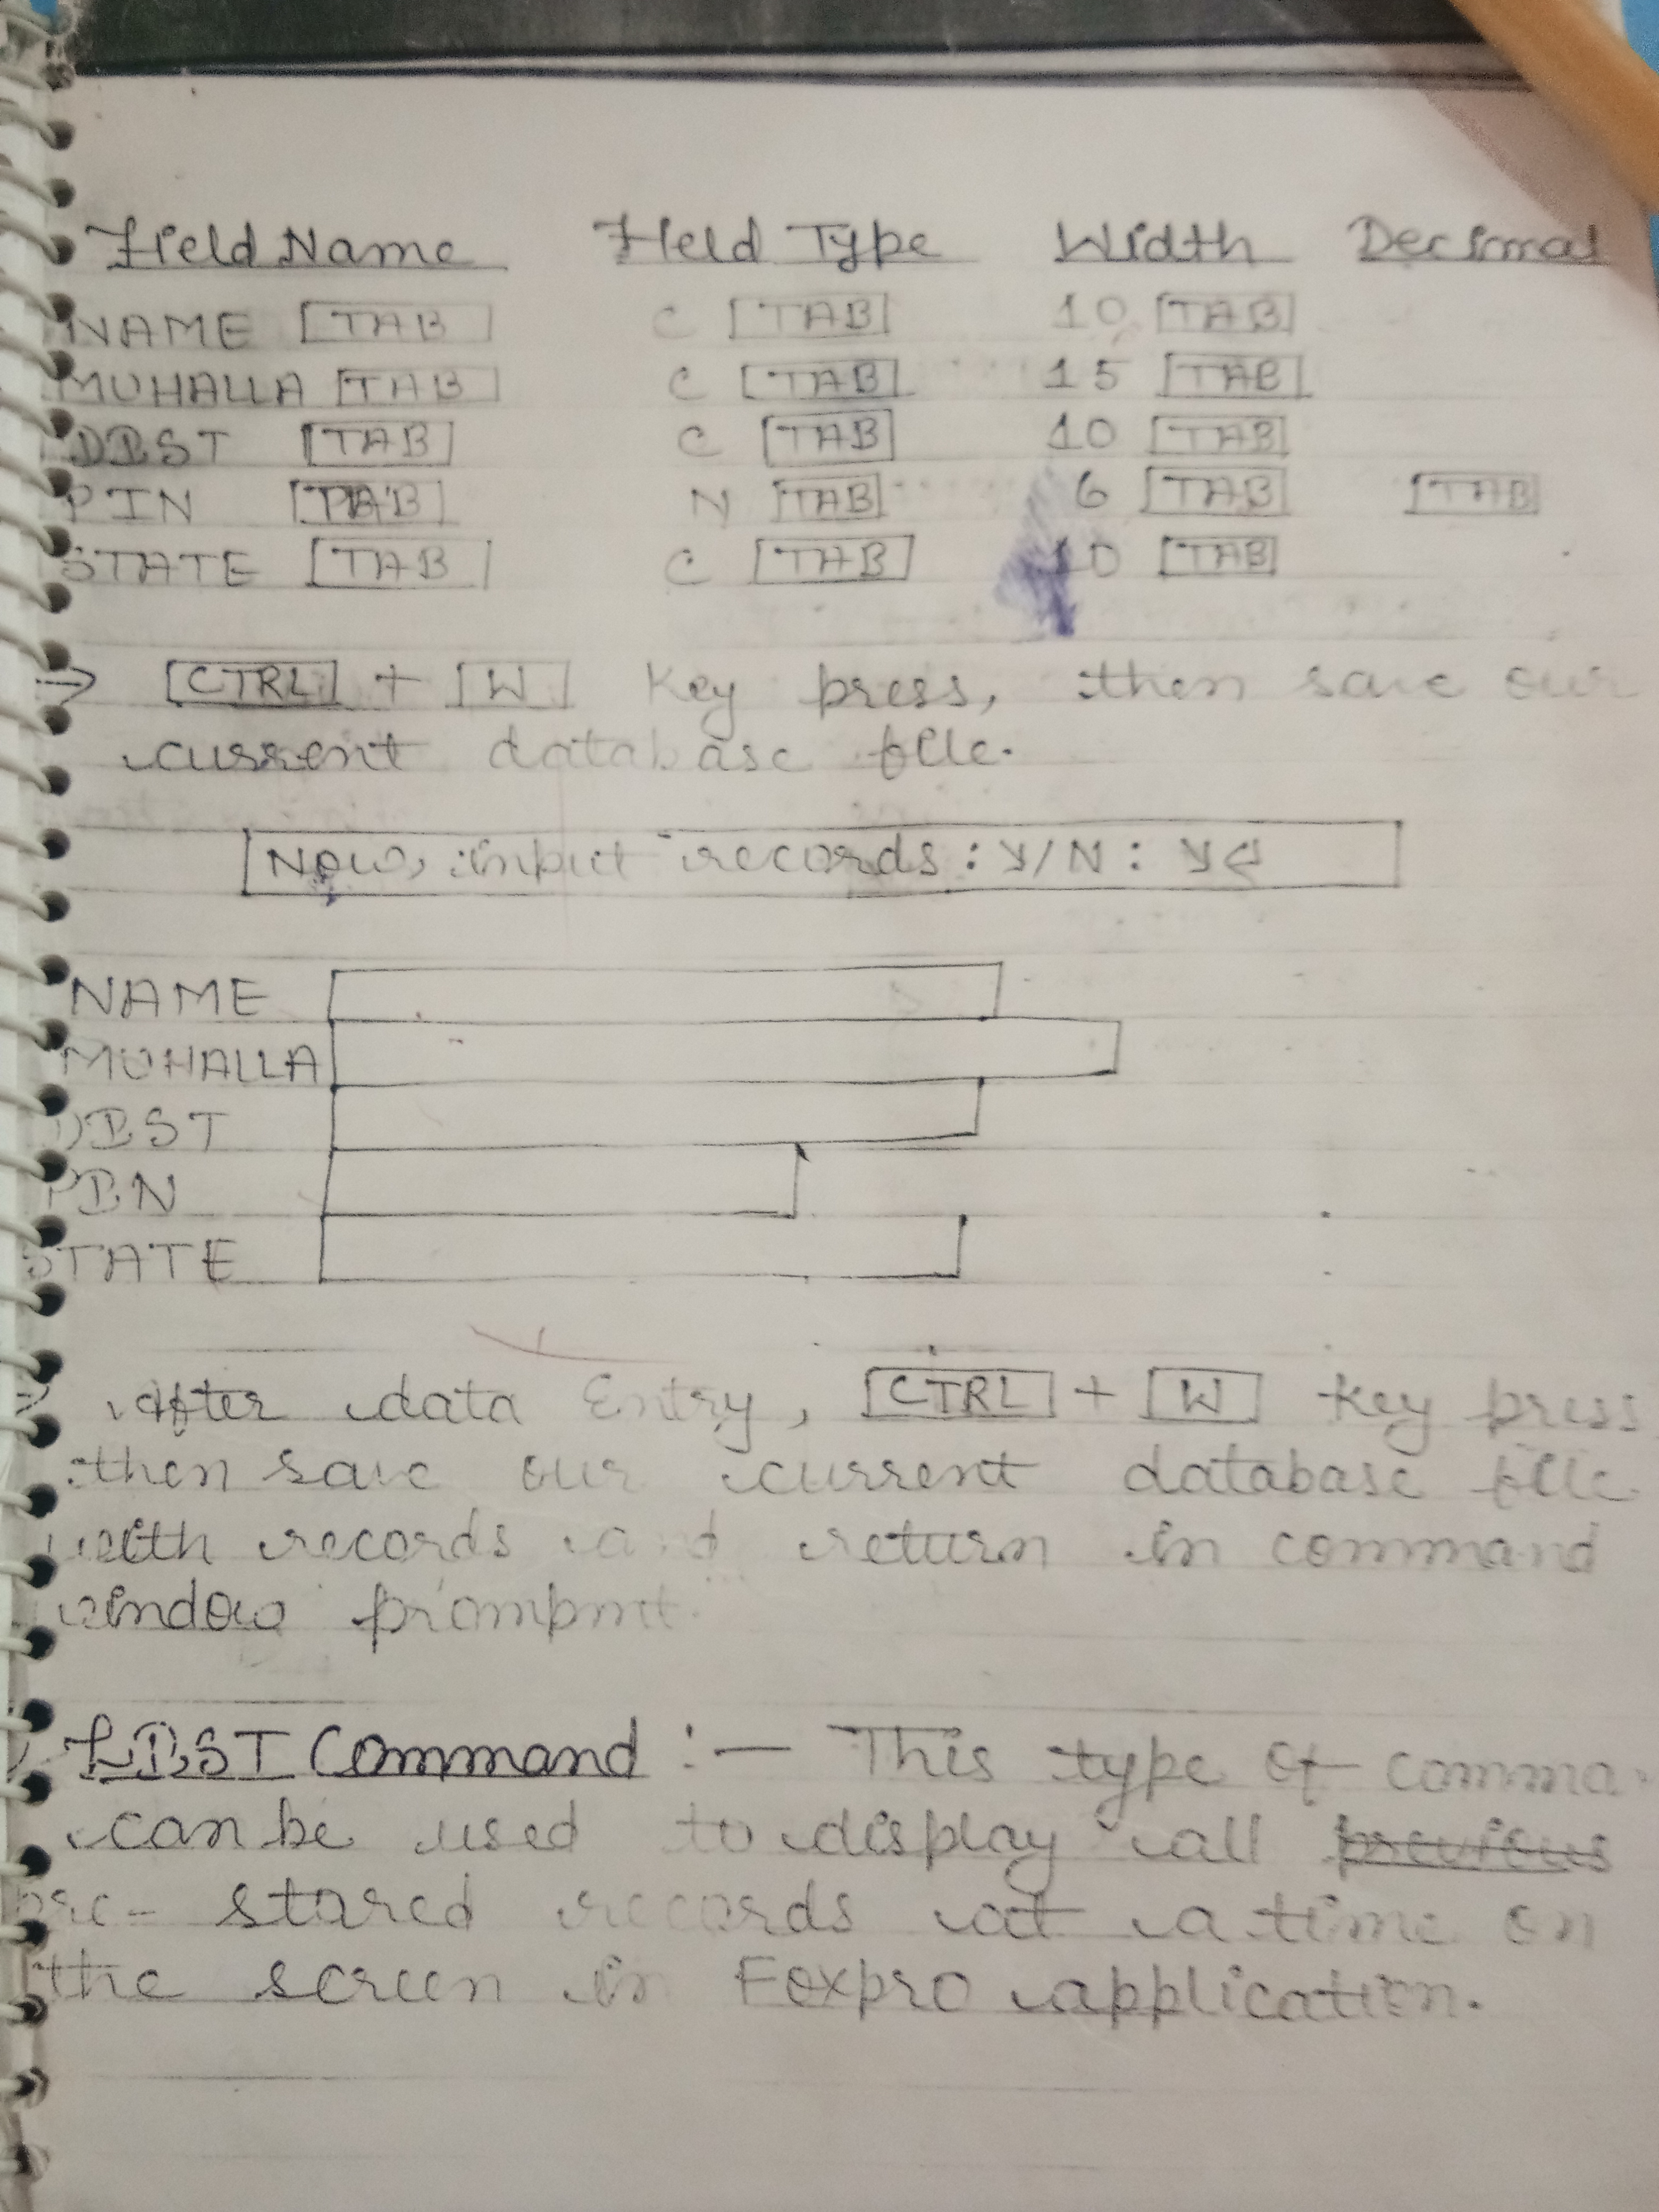 Field Name Field Type Width Decimal
NAME [TAB] C [TAB] 10 [TAB]
MUHALLA [TAB] C [TAB] 15 [TAB]
DIST [TAB] C [TAB] 10 [TAB]
PIN [TAB] N [TAB] 6 [TAB] [TAB]
STATE [TAB] C [TAB] 10 [TAB]
→ [CTRL] + [W] Key press, then save our
current database file.
Now, input records : Y/N : Y
NAME
MUHALLA
DIST
PIN
STATE
After data Entry, [CTRL] + [W] key press
then save our current database file
with records and return in command
window prompmt.
LIST Command :— This type of comma
can be used to display all previous
pre- stared records at a time on
the screen in Foxpro application.